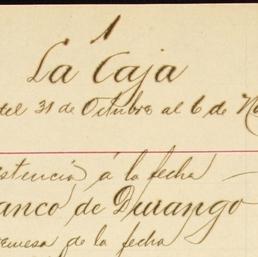 1
La Caja
del 31 de Octubre al 6 de No
istencia á la fecha
anco de Durango
emesa de la fecha